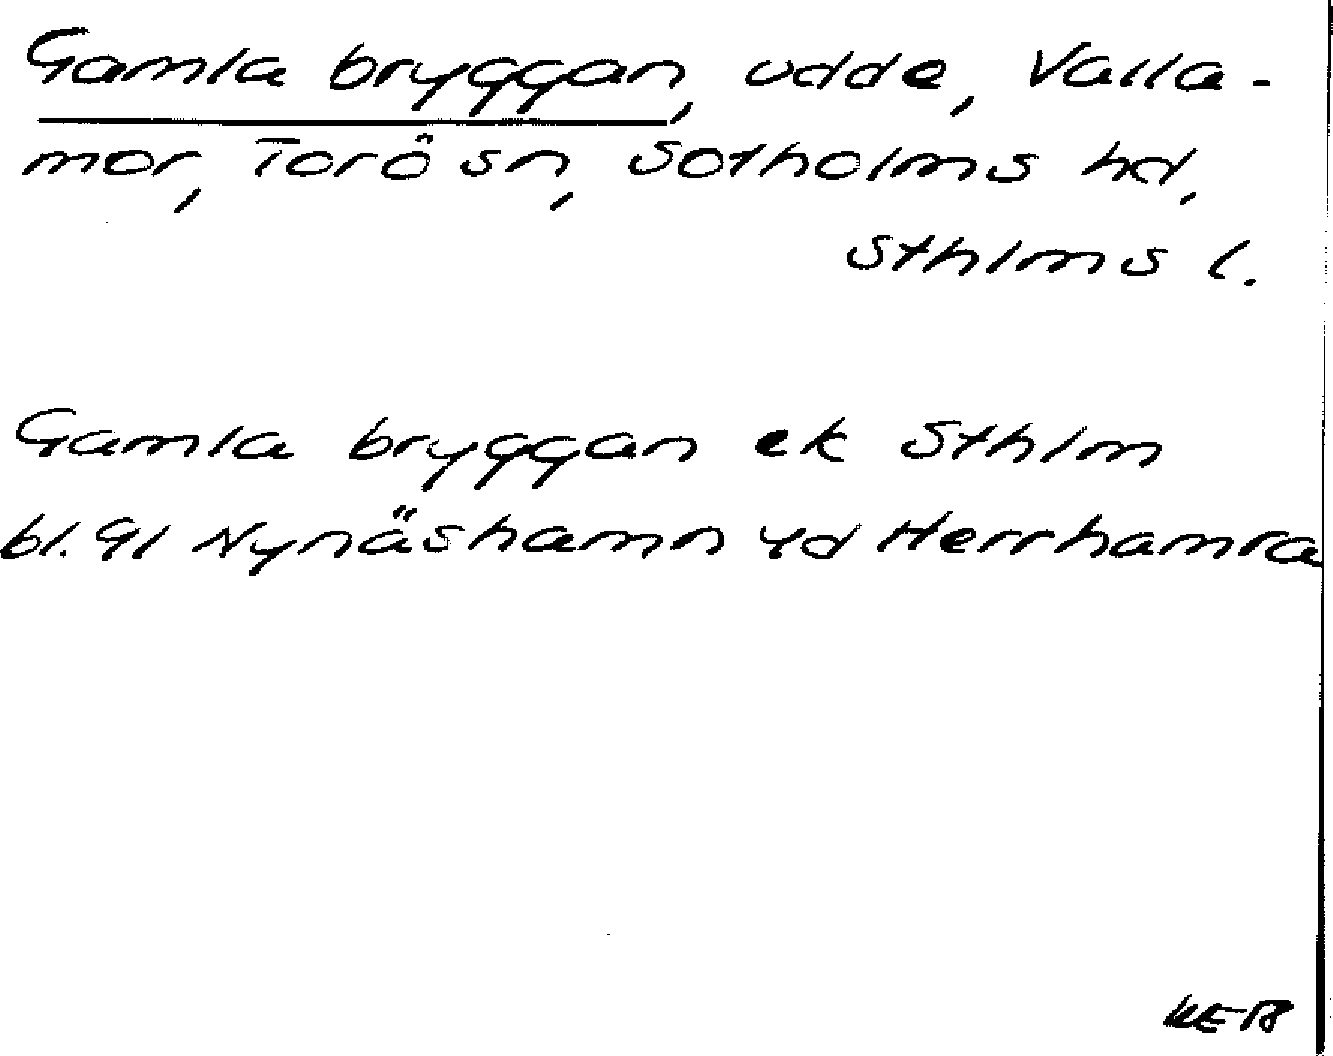 Gamla bryggan, udde, Valla-
mor, Torö sn, Sotholms hd,
Sthlms l.
Gamla bryggan ek Sthlm
bl. 91 Nynäshamn yd Herrhamra